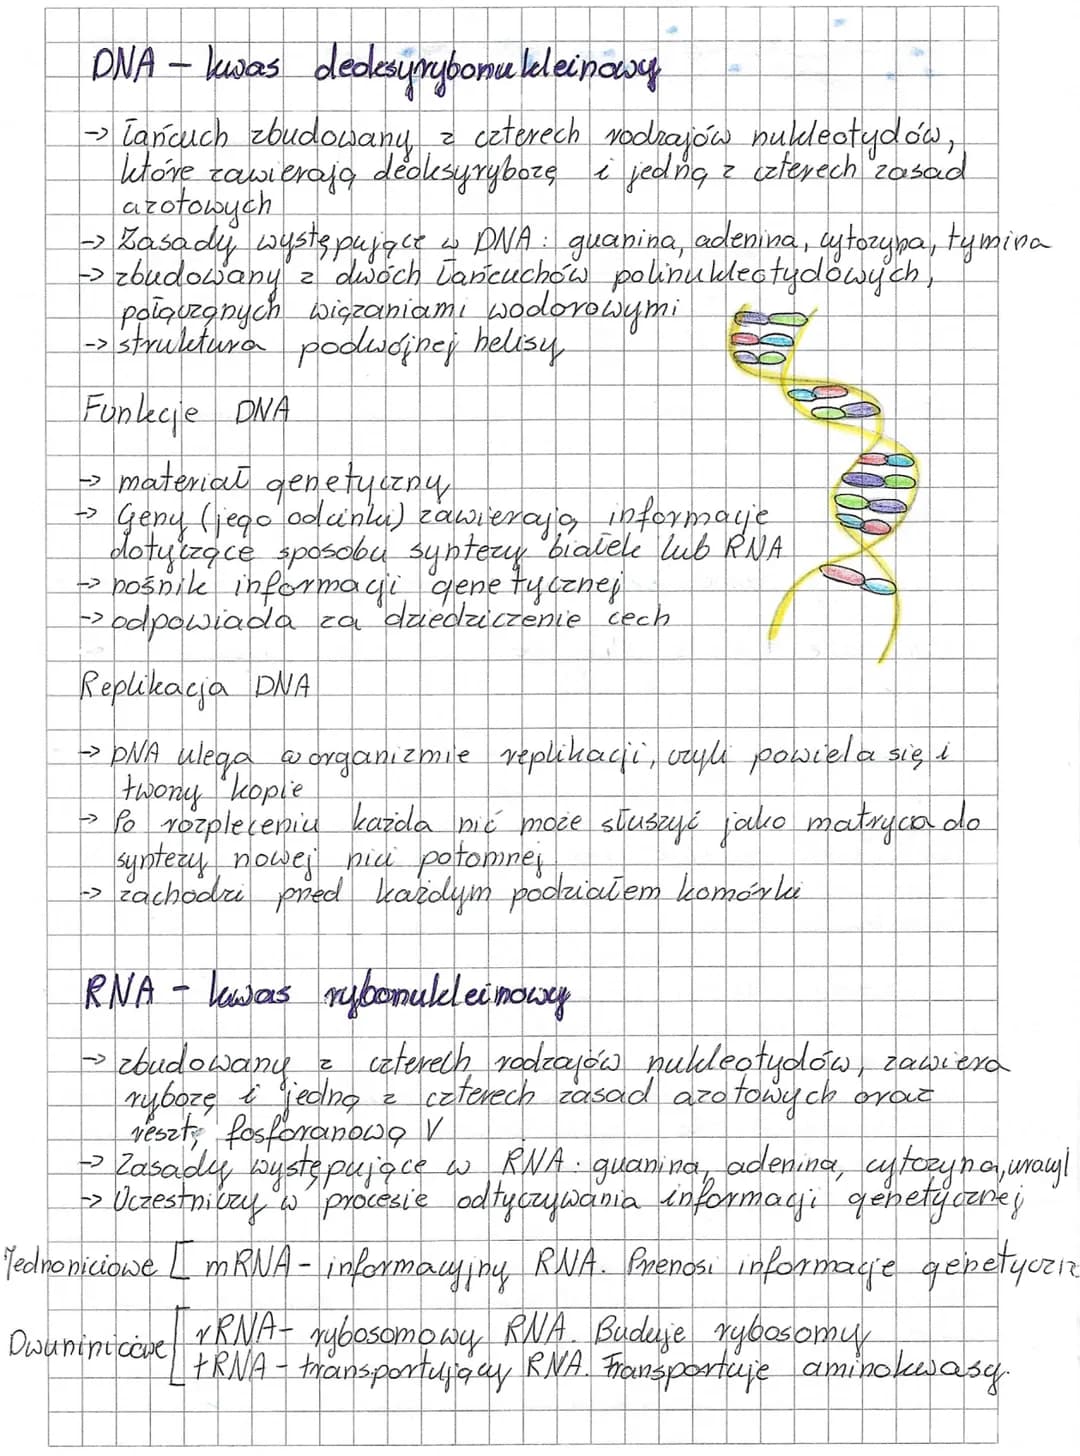 DNA - kwas deoksyrybonukleinowy
-> Łańcuch zbudowany z czterech rodzajów nukleotydów,
które zawierają deoksyrybozę i jedną z czterech zasad
azotowych
-> Zasady występujące w DNA: guanina, adenina, cytozyna, tymina
-> zbudowany z dwóch łańcuchów polinukleotydowych,
połączonych wiązaniami wodorowymi
-> struktura podwójnej helisy
Funkcje DNA
-> materiał genetyczny
-> Geny (jego odcinki) zawierają informacje
dotyczące sposobu syntezy białek lub RNA
-> nośnik informacji genetycznej
-> odpowiada za dziedziczenie cech
Replikacja DNA
-> DNA ulega w organizmie replikacji, czyli powiela się i
tworzy kopie
-> Po rozpleceniu każda nić może służyć jako matryca do
syntezy nowej nici potomnej
-> zachodzi przed każdym podziałem komórki
RNA - kwas rybonukleinowy
-> zbudowany z czterech rodzajów nukleotydów, zawiera
rybozę i jedną z czterech zasad azotowych oraz
resztę fosforanową V
-> Zasady występujące w RNA: guanina, adenina, cytozyna, uracyl
-> Uczestniczy w procesie odtyczywania informacji genetycznej
Jednoniciowe [ mRNA - informacyjny RNA. Przenosi informacje
Dwuniniciowe [ rRNA - rybosomowy RNA. Buduje rybosomy
tRNA - transportujący RNA. Transportuje aminokwasy.